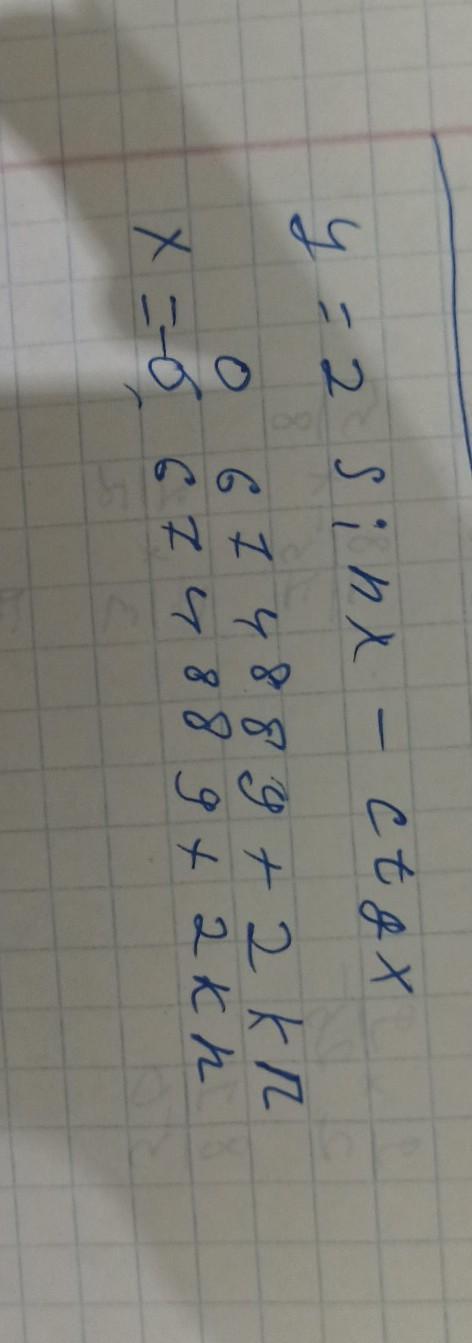 y = 2 sin x - ctg x
0 674889 + 2kπ
x = -0, 674889 + 2kπ